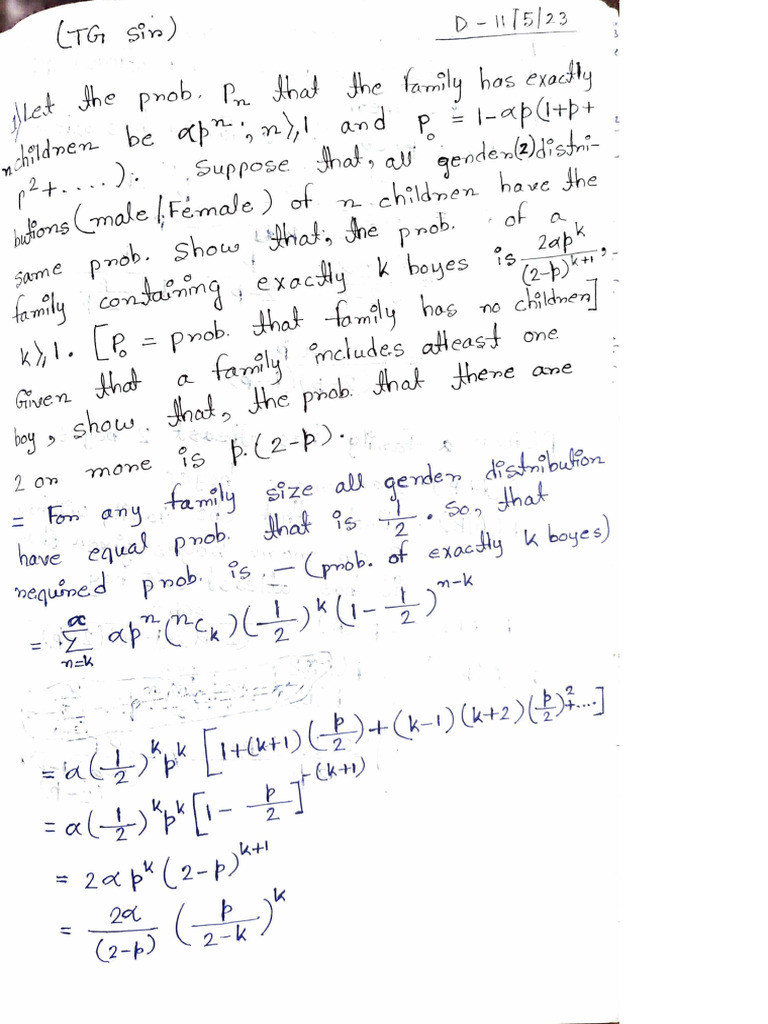 (TG sir)
D - 11/5/23
1) Let the prob. Pn that the family has exactly
n children be αpⁿ ; n ⩾ 1 and P₀ = 1-αp(1+p+
p²+.....). Suppose that, all gender(2) distri-
butions (male/Female) of n children have the
same prob. Show that, the prob. of a
family containing exactly k boyes is 2αp^k/(2-p)^(k+1),
k⩾1. [P₀ = prob. that family has no children]
Given that a family includes atleast one
boy, show that, the prob. that there are
2 or more is p.(2-p).
= For any family size all gender distribution
have equal prob. that is 1/2. So, that
required prob. is - (prob. of exactly k boyes)
= ∑_{n=k}^{∝} αpⁿ (ⁿC_k) (1/2)^k (1 - 1/2)^(n-k)
= α(1/2)^k p^k [1+(k+1)(p/2)+(k-1)(k+2)(p/2)²+....]
= α(1/2)^k p^k [1 - p/2]^-(k+1)
= 2αp^k (2-p)^(k+1)
= 2α/(2-p) (p/(2-k))^k